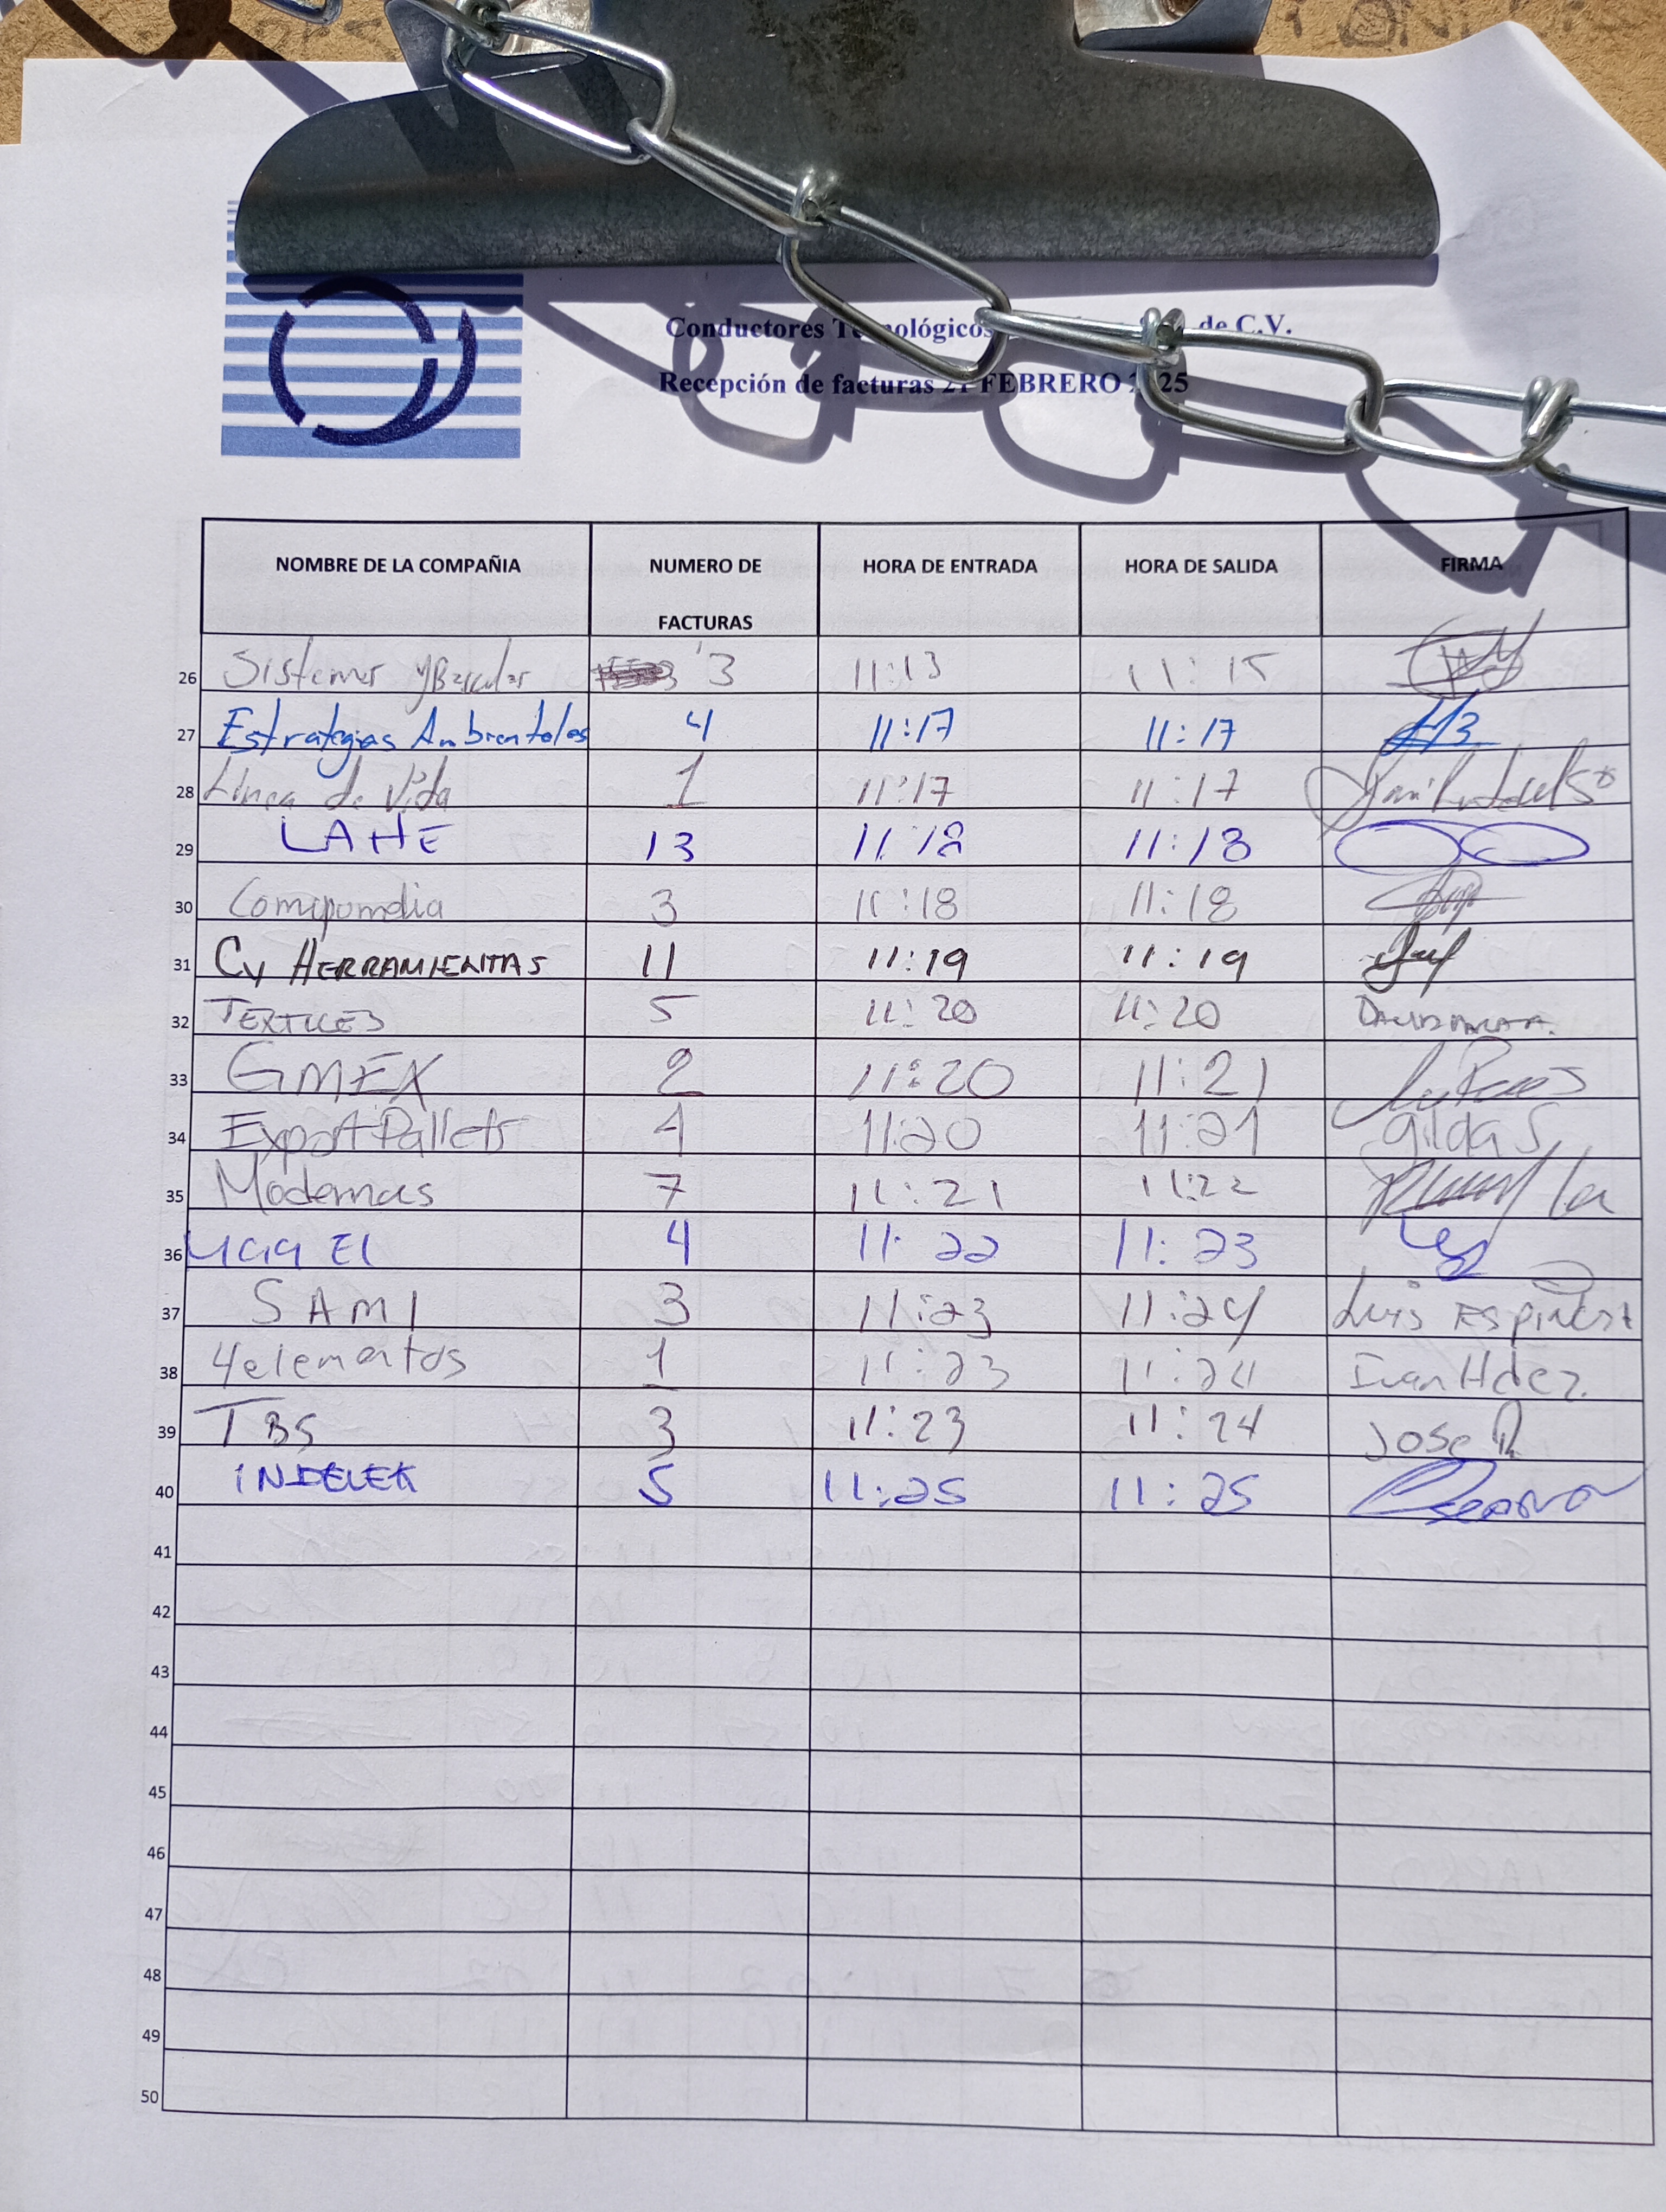 Conductores Tecnológicos de C.V.
Recepción de facturas 21 FEBRERO 2025
NOMBRE DE LA COMPAÑIA NUMERO DE FACTURAS HORA DE ENTRADA HORA DE SALIDA FIRMA
26 Sistemas y Basculas 3 11:13 11:15
27 Estrategias Ambientales 4 11:17 11:17
28 Linea de Vida 1 11:17 11:17
29 LAHE 13 11:18 11:18
30 3 11:18 11:18
31 Cy HERRAMIENTAS 11 11:19 11:19
32 TEXTILES 5 11:20 11:20
33 GMEX 2 11:20 11:21
34 Export Pallets 4 11:20 11:21 Gilda S.
35 Modernas 7 11:21 11:22
36 4 11:22 11:23
37 SAMI 3 11:23 11:24 Luis Espinosa
38 4elementos 1 11:23 11:24 Ivan Hdez.
39 TBS 3 11:23 11:24 Jose R
40 INDELEK 5 11:25 11:25
41
42
43
44
45
46
47
48
49
50